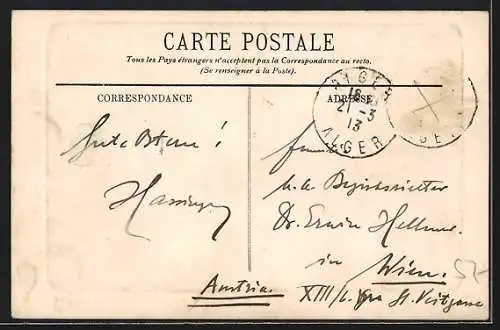 CARTE POSTALE
Tous les Pays étrangers n'acceptent pas la Correspondance au recto.
(Se renseigner à la Poste).
CORRESPONDANCE
ADRESSE
ALGER
21 -3
13
ALGER
Gute Ostern!
k.k. Bezirksrichter
Dr. Erwin Hellmer
in
Wien.
Austria.
XIII/6.
52